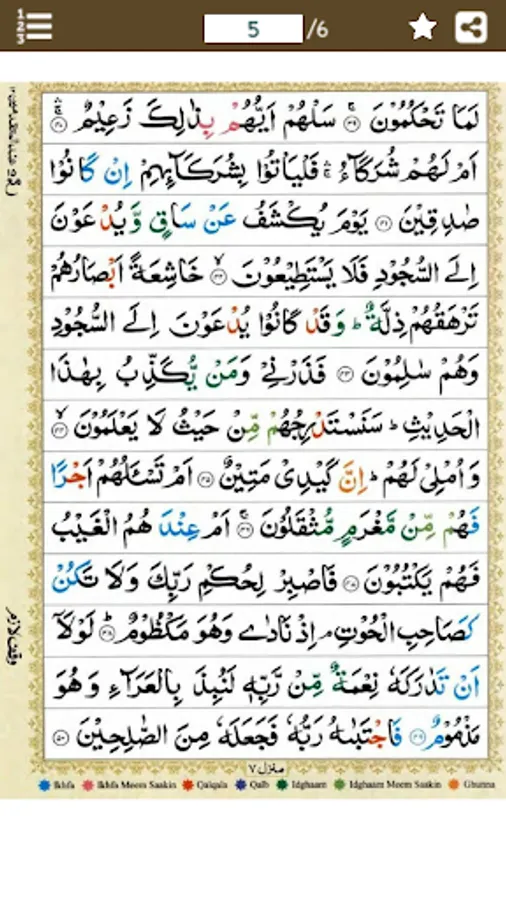 5 /6
لَمَا تَحْكُمُوْنَ ۝۳۹ سَلْهُمْ اَيُّهُمْ بِذٰلِكَ زَعِيْمٌ ۝۴۰
اَمْ لَهُمْ شُرَكَآءُ ۛۚ فَلْيَاْتُوْا بِشُرَكَآئِهِمْ اِنْ كَانُوْا
صٰدِقِيْنَ ۝۴۱ يَوْمَ يُكْشَفُ عَنْ سَاقٍ وَّيُدْعَوْنَ
اِلَى السُّجُوْدِ فَلَا يَسْتَطِيْعُوْنَ ۝۴۲ خَاشِعَةً اَبْصَارُهُمْ
تَرْهَقُهُمْ ذِلَّةٌ ؕ وَقَدْ كَانُوْا يُدْعَوْنَ اِلَى السُّجُوْدِ
وَهُمْ سٰلِمُوْنَ ۝۴۳ فَذَرْنِيْ وَمَنْ يُّكَذِّبُ بِهٰذَا
الْحَدِيْثِ ؕ سَنَسْتَدْرِجُهُمْ مِّنْ حَيْثُ لَا يَعْلَمُوْنَ ۝۴۴
وَاُمْلِيْ لَهُمْ ؕ اِنَّ كَيْدِيْ مَتِيْنٌ ۝۴۵ اَمْ تَسْـَٔلُهُمْ اَجْرًا
فَهُمْ مِّنْ مَّغْرَمٍ مُّثْقَلُوْنَ ۝۴۶ اَمْ عِنْدَهُمُ الْغَيْبُ
فَهُمْ يَكْتُبُوْنَ ۝۴۷ فَاصْبِرْ لِحُكْمِ رَبِّكَ وَلَا تَكُنْ
كَصَاحِبِ الْحُوْتِ ۘ اِذْ نَادٰى وَهُوَ مَكْظُوْمٌ ؕ۝۴۸ لَوْلَآ
اَنْ تَدٰرَكَهٗ نِعْمَةٌ مِّنْ رَّبِّهٖ لَنُبِذَ بِالْعَرَآءِ وَهُوَ
مَذْمُوْمٌ ۝۴۹ فَاجْتَبٰىهُ رَبُّهٗ فَجَعَلَهٗ مِنَ الصّٰلِحِيْنَ ۝۵۰
وقف لازم
منزل ۷
Ikhfa Ikhfa Meem Saakin Qalqala Qalb Idghaam Idghaam Meem Saakin Ghunna